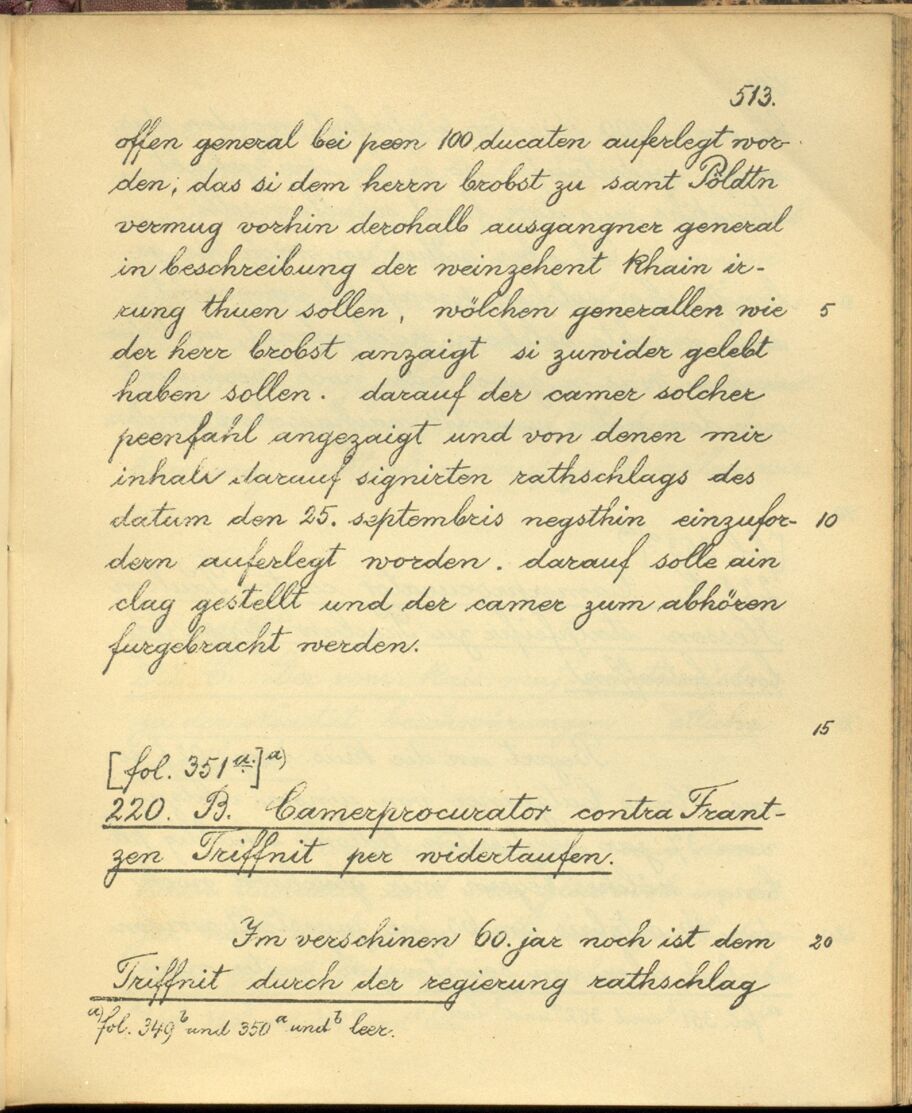 513.
offen general bei peen 100 ducaten auferlegt wor-
den, das si dem herrn brobst zu sant Pöldtn
vermug vorhin derohalb ausgangner general
in beschreibung der weinzehent khain ir-
rung thuen sollen, wölchen generallen wie 5
der herr brobst anzaigt si zuwider gelebt
haben sollen. darauf der camer solcher
peenfahl angezaigt und von denen mir
inhalt darauf signirten rathschlags des
datum den 25. septembris negsthin einzufor- 10
dern auferlegt worden. darauf solle ain
clag gestellt und der camer zum abhören
furgebracht werden.
15
[fol. 351a.]a)
220. B. Camerprocurator contra Frant-
zen Triffnit per widertaufen.
Im verschinen 60. jar noch ist dem 20
Triffnit durch der regierung rathschlag
a) fol. 349b und 350a und b leer.